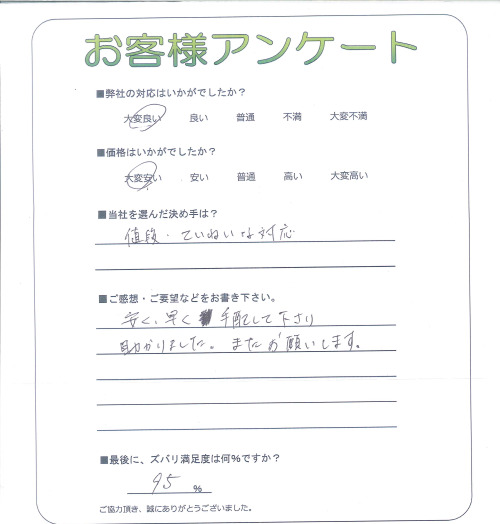 お客様アンケート
■弊社の対応はいかがでしたか?
大変良い 良い 普通 不満 大変不満
■価格はいかがでしたか?
大変安い 安い 普通 高い 大変高い
■当社を選んだ決め手は?
値段・ていねいな対応
■ご感想・ご要望などをお書き下さい。
安く、早く手配して下さり
助かりました。またお願いします。
■最後に、ズバリ満足度は何%ですか?
95 %
ご協力頂き、誠にありがとうございました。